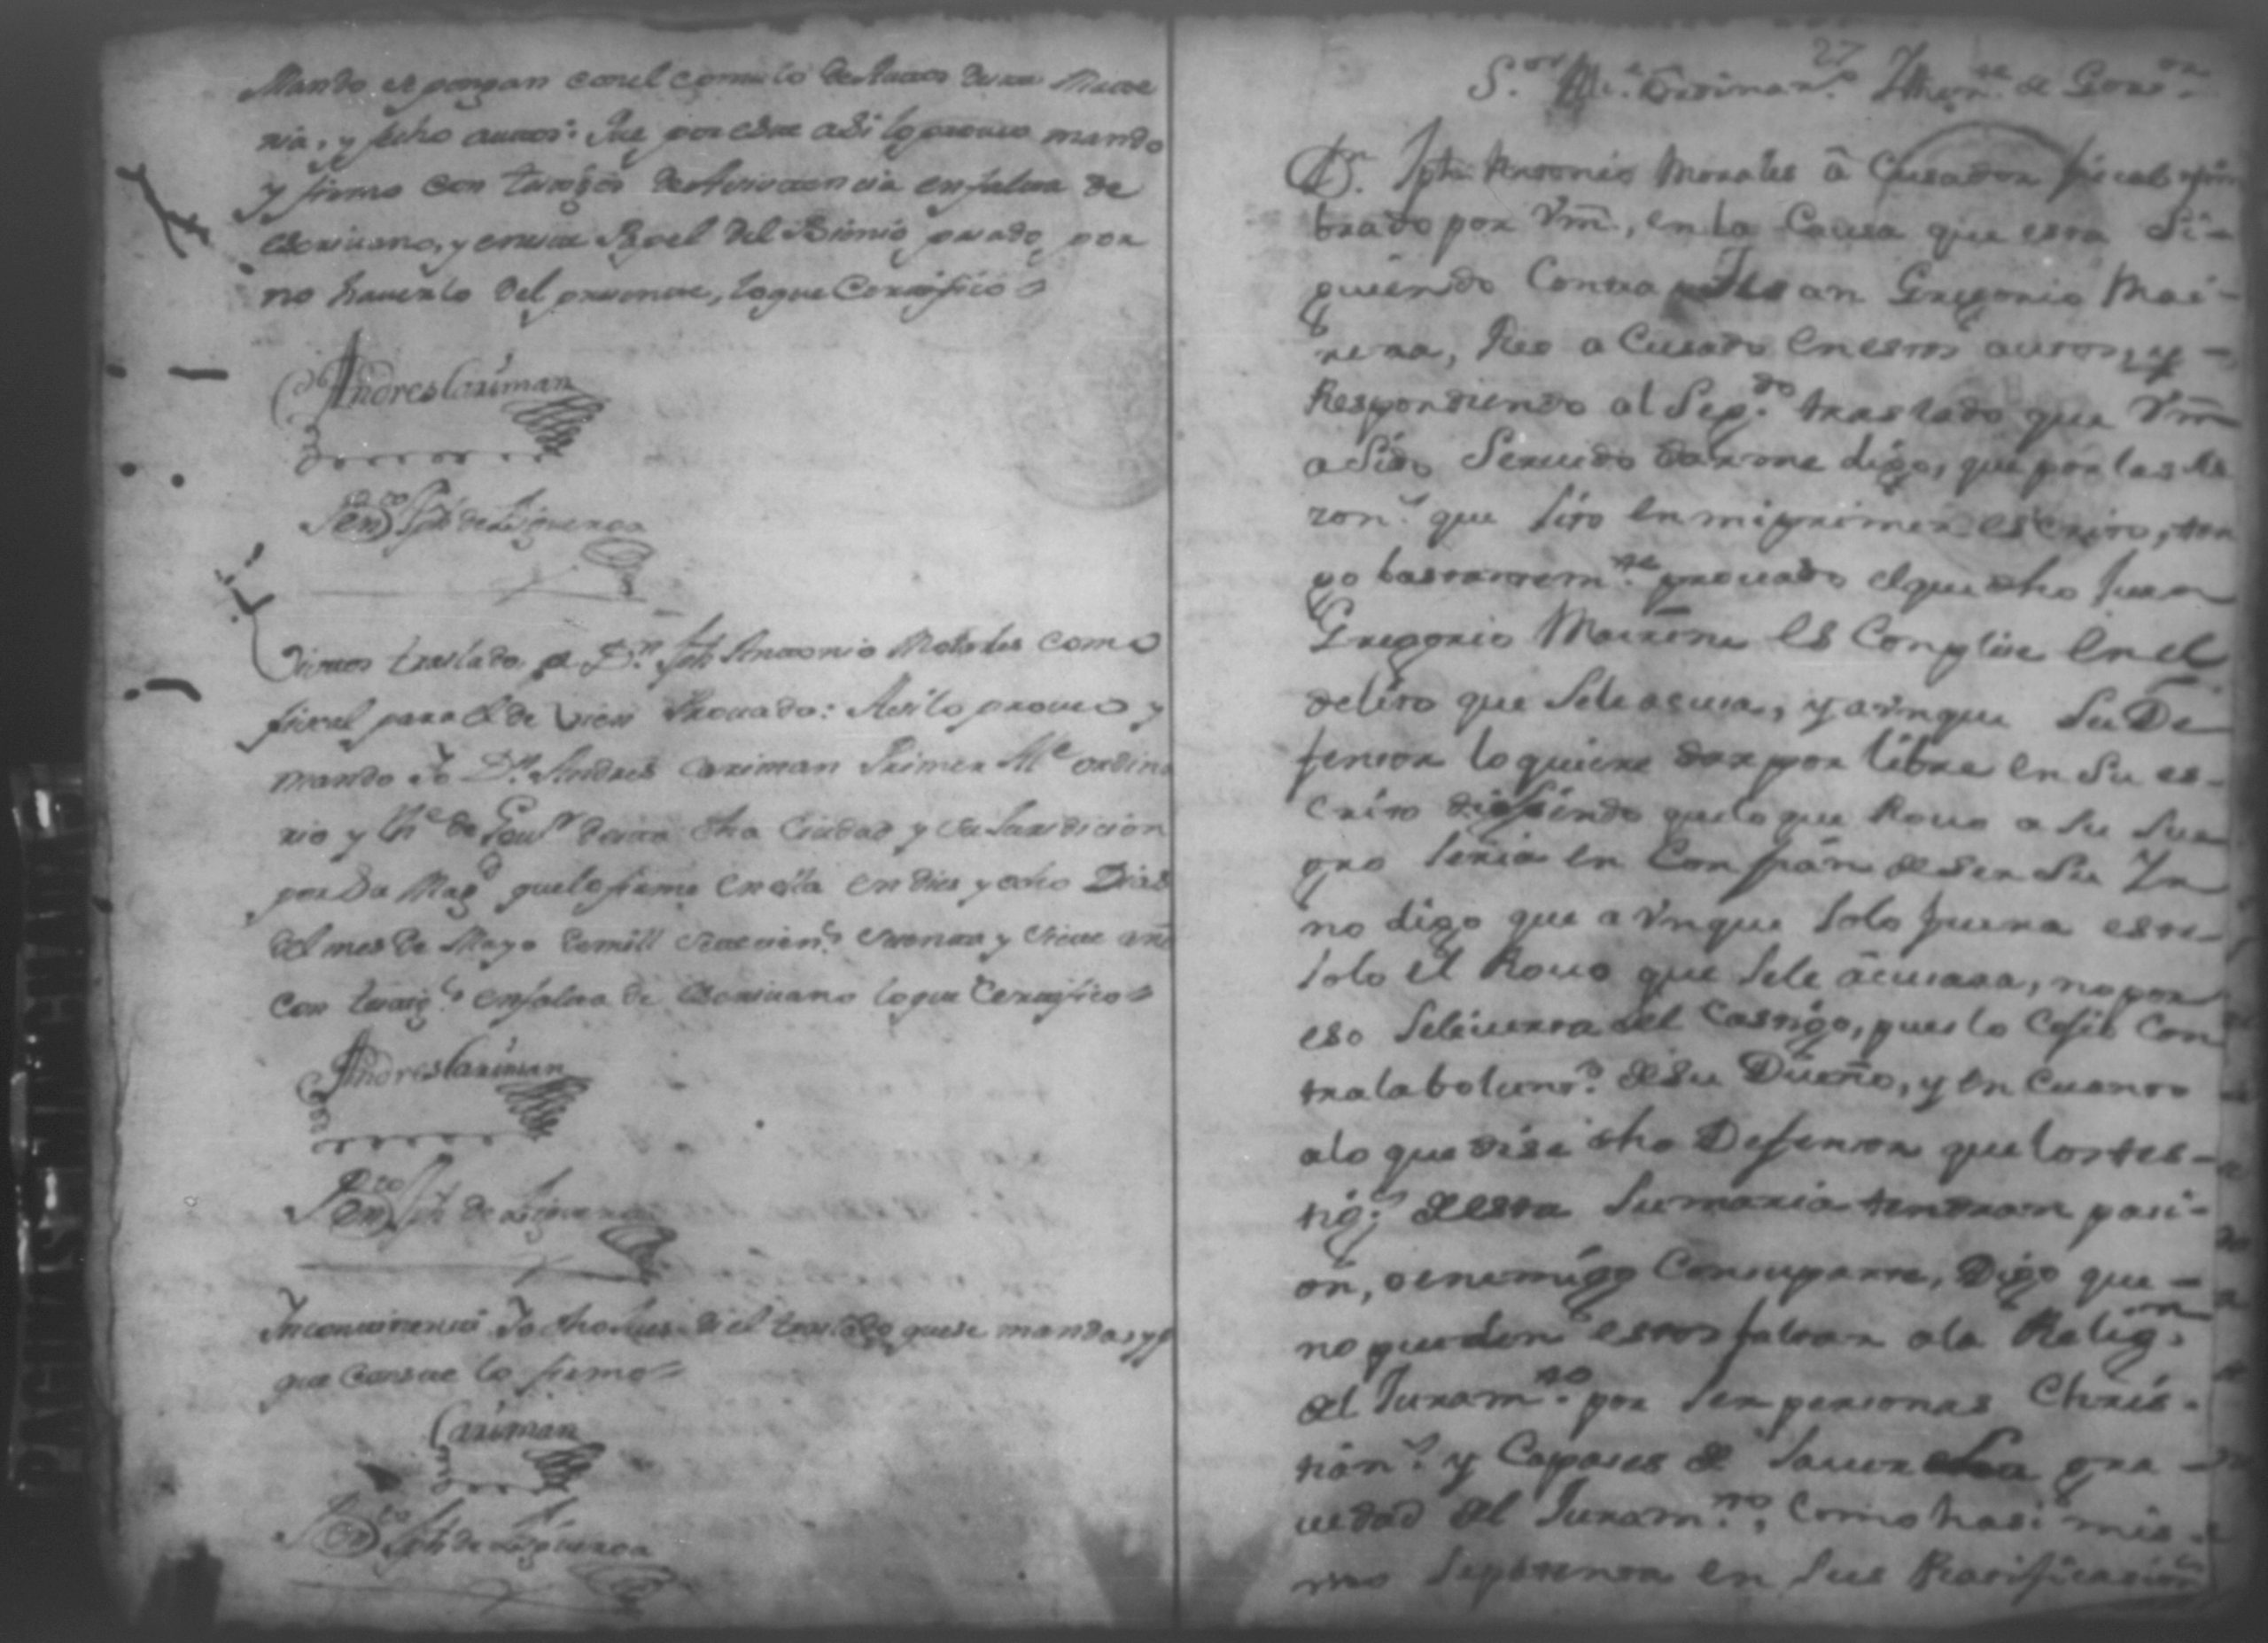 Mando se pongan con el comulo de Autos de esta Mate
ria, y fecho autos: Que por este asi lo proveo mando
y firmo con testigos de Asistencia en falta de
escrivano, y en este Papel del Bienio pasado por
no haverlo del presente, lo que Certifico
Andres Cariman
Fran.co Jph de Figueroa
Autos traslado, a D.n Jph Antonio Morales como
fiscal para el de vien Provado: Asi lo proveo y
mando Yo D.n Andres Cariman Primer Al.e ordina
rio y The de Gov.r de esta dha Ciudad y su Jurisdicion
por Su Mag.d que lo firmo en ella en dies y ocho Dias
del mes de Mayo de mill setecien.s y años
Con testig.s en falta de Escrivano lo que Certifico
Andres Cariman
Fran.co Jph de Figueroa
Incontinenti Yo dho Jues di el traslado que se manda, y p.a
que Conste lo firmo
Cariman
Fran.co Jph de Figueroa
27
S.or Al.e Ordinar.o Thien.te de Gov.or
D.n Jph Antonio Morales âCusador fiscal nom
brado por Vm̃, en la Causa que esta Si-
guiendo Contra Juan Gregorio Mai-
rena, Reo aCusado en estos autos, y
Respondiendo al Seg.do traslado que Vm̃
a Sido Servido darme digo, que por las Ra
zon.s que sito en mi primer escrito, ten
go bastantem.te provado el que dho Juan
Gregorio Mairena es Complise en el
delito que Se le acusa, y aUnque Su De
fensor lo quiere dar por libre en Su es-
crito disiendo que lo que Rovo a Su Sue
gro Seria en Confian de Ser Su Yer
no digo que aUnque Solo fuera este
Solo el Rovo que Se le âcusara, no por
eso Se livertara del Castigo, pues lo Cojio Con
tra la bolunt.d de Su Dueño, y en Cuanto
a lo que dise dho Defensor que los tes-
tig.s de esta Sumaria tendran pasi-
on, o enemiga Con su parte, Digo que
no pueden estos faltar a la Relig.on
del Juram.to por Ser personas Chris-
tian.s y Capases de Saver la gra-
vedad del Juram.to, Como hasi mis
mo Se ostenta en Sus Ratificasion